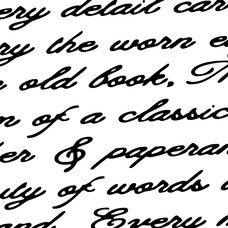 ery detail car
ry the worn e
old book. T
n of a classic
er & paperan
uty of words
and. Every